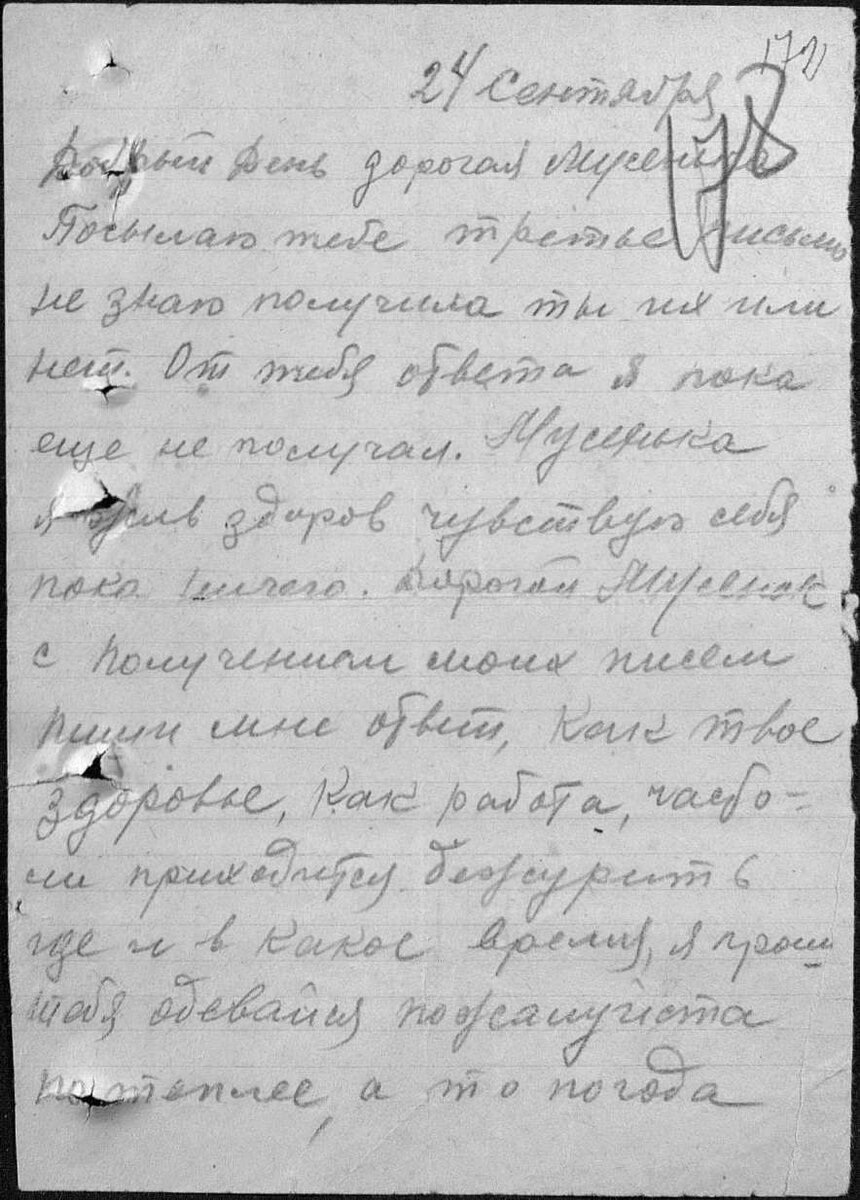 172
24 Сентября
178
Добрый День дорогая Мусенька
Посылаю тебе третье письмо
не знаю получила ты их или
нет. От тебя ответа я пока
еще не получал. Мусенька
я жив здоров чувствую себя
пока ничего. Дорогой Мусенок
с получением моих писем
пиши мне ответ, Как твое
здоровье, Как работа, часто-
ли приходится дежурить
где и в какое время, я прошу
тебя одевайся пожалуйста
по теплее, а то погода